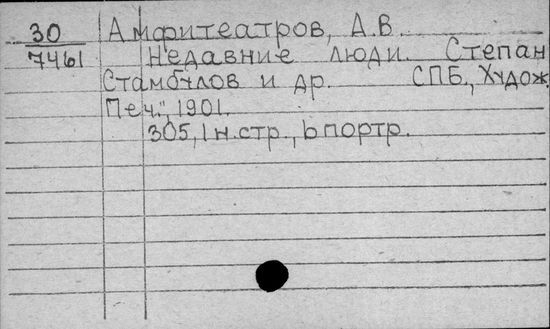 30 Амфитеатров, А.В.
7461 Недавние люди. Степан
Стамбулов и др. СПБ., Худож.
Печ.", 1901.
305, 1 н.стр., 6 портр.